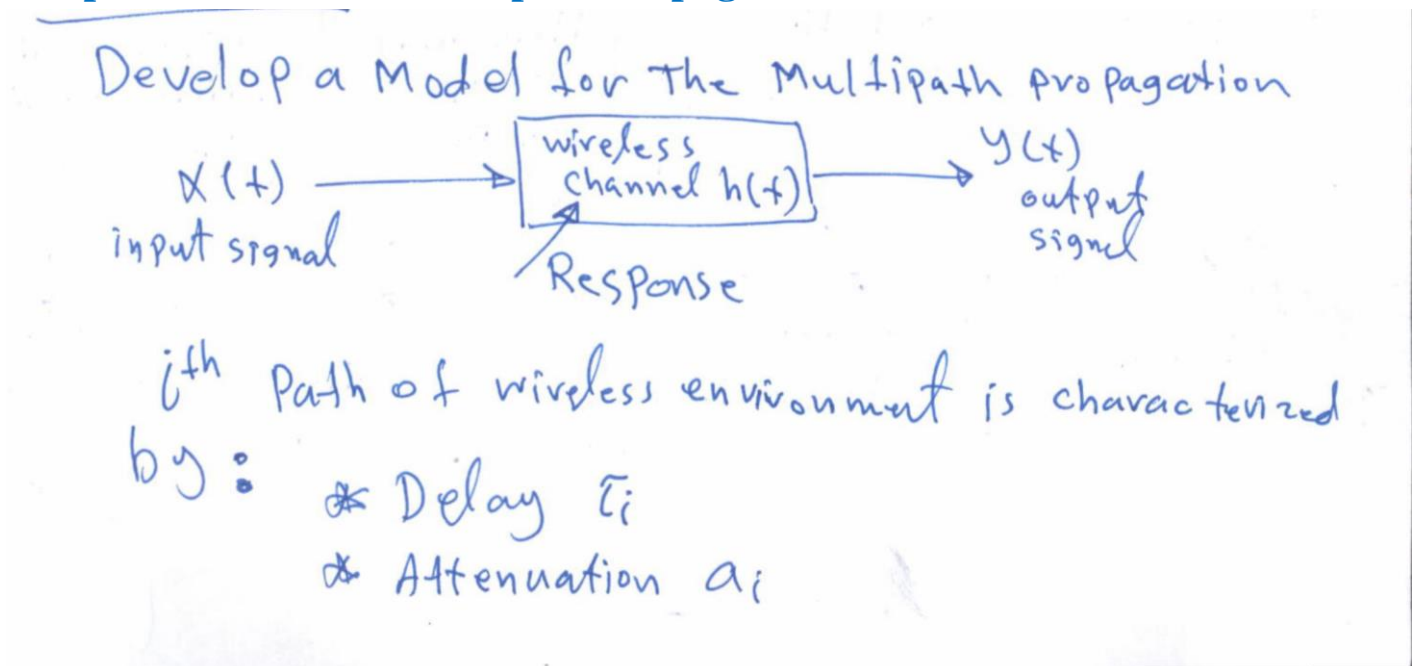 Develop a Model for The Multipath propagation
x(t)
input signal
wireless
channel h(t)
Response
y(t)
output
signal
ith Path of wireless environment is characterized
by:
* Delay τi
* Attenuation ai